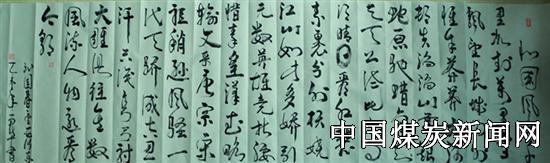 北国风
里冰封万里
飘望长城
惟余莽莽
顿失滔滔山
蛇原驰蜡
与天公试比
须晴日看红
素裹分外妖娆
江山如此多娇
无数英雄竞折
惜秦皇汉武略
输文采唐宗宋
祖稍逊风骚一
代天骄成吉思
汗只识弯弓射
大雕俱往矣数
风流人物还看
今朝
沁园春雪
乙未年
中国煤炭新闻网